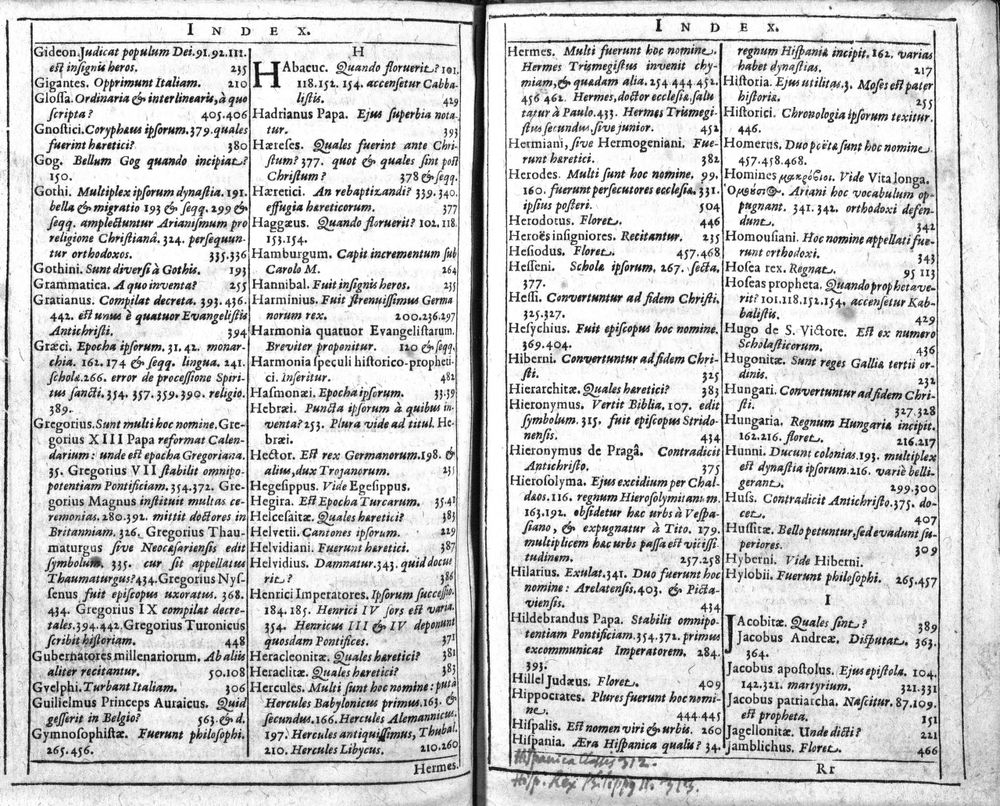 INDEX.
Gideon. Judicat populum Dei. 91. 92. 112.
est insignis heros. 235
Gigantes. Opprimunt Italiam. 210
Glossa. Ordinaria & interlinearis, à quo
scripta? 405. 406
Gnostici. Coryphæus ipsorum. 379. quales
fuerint heretici? 380
Gog. Bellum Gog quando incipiat?
150.
Gothi. Multiplex ipsorum dynastia. 191.
bella & migratio 193 & seqq. 299 &
seqq. amplectuntur Arianismum pro
religione Christianâ. 324. persequun-
tur orthodoxos. 335. 336
Gothini. Sunt diversi à Gothis. 193
Grammatica. A quo inventa? 255
Gratianus. Compilat decreta. 393. 436.
442. est unus è quatuor Evangelistis
Antichristi. 394
Græci. Epocha ipsorum. 31. 42. monar-
chia. 162. 174 & seqq. lingua. 241.
schola. 266. error de processione Spiri-
tus sancti. 354. 357. 359. 390. religio.
389.
Gregorius. Sunt multi hoc nomine. Gre-
gorius XIII Papa reformat Calen-
darium: unde est epocha Gregoriana.
35. Gregorius VII stabilit omnipo-
potentiam Pontificiam. 354. 372. Gre-
gorius Magnus instituit multas ce-
remonias. 280. 392. mittit doctores in
Britanniam. 326. Gregorius Thau-
maturgus sive Neocæsariensis edit
symbolum. 335. cur sit appellatus
Thaumaturgus? 434. Gregorius Nys-
senus fuit episcopus uxoratus. 368.
434. Gregorius IX compilat decre-
tales. 394. 442. Gregorius Turonicus
scribit historiam. 448
Gubernatores millenariorum. Ab aliis
aliter recitantur. 50. 108
Gvelphi. Turbant Italiam. 306
Guilielmus Princeps Auraicus. Quid
gesserit in Belgio? 563. & d.
Gymnosophistæ. Fuerunt philosophi.
265. 456.
H
HAbacuc. Quando floruerit? 101.
118. 152. 154. accensetur Cabba-
listis. 429
Hadrianus Papa. Ejus superbia nota-
tur. 393
Hæreses. Quales fuerint ante Chri-
stum? 377. quot & quales sint post
Christum? 378 & seqq.
Hæretici. An rebaptizandi? 339. 340.
effugia hæreticorum. 377
Haggæus. Quando floruerit? 102. 118.
153. 154.
Hamburgum. Capit incrementum sub
Carolo M. 264
Hannibal. Fuit insignis heros. 235
Harminius. Fuit strenuissimus Germa
norum rex. 200. 236. 297
Harmonia quatuor Evangelistarum.
Breviter proponitur. 120 & seqq.
Harmonia speculi historico-propheti-
ci. Inseritur. 482
Hasmonæi. Epocha ipsorum. 33. 39
Hebræi. Puncta ipsorum à quibus in-
venta? 253. Plura vide ad titul. He-
bræi.
Hector. Est rex Germanorum. 198. &
alius, dux Trojanorum. 235
Hegesippus. Vide Egesippus.
Hegira. Est Epocha Turcarum. 35. 41
Helcesaitæ. Quales hæretici? 383
Helvetii. Cantones ipsorum. 229
Helvidiani. Fuerunt heretici. 387
Helvidius. Damnatur. 343. quid docue
rit? 386
Henrici Imperatores. Ipsorum successio.
184. 185. Henrici IV sors est varia.
354. Henricus III & IV deponunt
quosdam Pontifices. 371
Heracleonitæ. Quales hæretici? 381
Heraclitæ. Quales heretici? 383
Hercules. Multi sunt hoc nomine: puta
Hercules Babylonicus primus. 163. &
secundus. 166. Hercules Alemannicus.
197. Hercules antiquissimus, Thubal.
210. Hercules Libycus. 210. 260
Hermes.
INDEX.
Hermes. Multi fuerunt hoc nomine.
Hermes Trismegistus invenit chy-
miam, & quædam alia. 254 444. 452.
456 462. Hermes, doctor ecclesiæ, salu
tatur à Paulo. 433. Hermes Trismegi-
stus secundus, sive junior. 452
Hermiani, sive Hermogeniani. Fue-
runt heretici. 382
Herodes. Multi sunt hoc nomine. 99.
160. fuerunt persecutores ecclesiæ. 331.
ipsius posteri. 504
Herodotus. Floret. 446
Heroës insigniores. Recitantur. 235
Hesiodus. Floret. 457. 468
Hesseni. Schola ipsorum. 267. secta.
377.
Hessi. Convertuntur ad fidem Christi.
325. 327.
Hesychius. Fuit episcopus hoc nomine.
369. 404.
Hiberni. Convertuntur ad fidem Chri-
sti. 325
Hierarchitæ. Quales heretici? 383
Hieronymus. Vertit Biblia. 107. edit
symbolum. 315. fuit episcopus Strido-
nensis. 434
Hieronymus de Pragâ. Contradicit
Antichristo. 375
Hierosolyma. Ejus excidium per Chal-
dæos. 116. regnum Hierosolymitanum.
163. 192. obsidetur hæc urbs à Vespa-
siano, & expugnatur à Tito. 179.
multiplicem hæc urbs passa est vicissi-
tudinem. 257. 258
Hilarius. Exulat. 341. Duo fuerunt hoc
nomine: Arelatensis. 403. & Picta-
viensis. 434
Hildebrandus Papa. Stabilit omnipo-
tentiam Pontificiam. 354. 372. primus
excommunicat Imperatorem. 284.
393.
Hillel Judæus. Floret. 409
Hippocrates. Plures fuerunt hoc nomi-
ne. 444. 445
Hispalis. Est nomen viri & urbis. 260
Hispania. Æra Hispanica qualis? 34.
regnum Hispaniæ incipit. 162. varias
habet dynastias. 217
Historia. Ejus utilitas. 3. Moses est pater
historiæ. 255
Historici. Chronologia ipsorum texitur.
446.
Homerus. Duo poëtæ sunt hoc nomine.
457. 458. 468.
Homines μακρόβιοι. Vide Vita longa.
Ὁμούσιος. Ariani hoc vocabulum op-
pugnant. 341. 342. orthodoxi defen-
dunt. 342
Homousiani. Hoc nomine appellati fue-
runt orthodoxi. 343
Hosea rex. Regnat. 95 113
Hoseas propheta. Quando prophetave-
rit? 101. 118. 152. 154. accensetur Kab-
balistis. 429
Hugo de S. Victore. Est ex numero
Scholasticorum. 436
Hugonitæ. Sunt reges Galliæ tertii or-
dinis. 232
Hungari. Convertuntur ad fidem Chri-
sti. 327. 328
Hungaria. Regnum Hungariæ incipit.
162. 216. floret. 216. 217
Hunni. Ducunt colonias. 193. multiplex
est dynastia ipsorum. 216. variè belli-
gerant. 299. 300
Huss. Contradicit Antichristo. 375. do-
cet. 407
Hussitæ. Bello petuntur, sed evadunt su-
periores. 309
Hyberni. Vide Hiberni.
Hylobii. Fuerunt philosophi. 265. 457
I
JAcobitæ. Quales sint? 389
Jacobus Andreæ. Disputat. 363.
364.
Jacobus apostolus. Ejus epistola. 104.
142. 321. martyrium. 321. 331
Jacobus patriarcha. Nascitur. 87. 109.
est propheta. 151
Jagellonitæ. Unde dicti? 221
Jamblichus. Floret. 466
Rr
Hispanica Classis 312.
Hisp. Rex Philippus II.